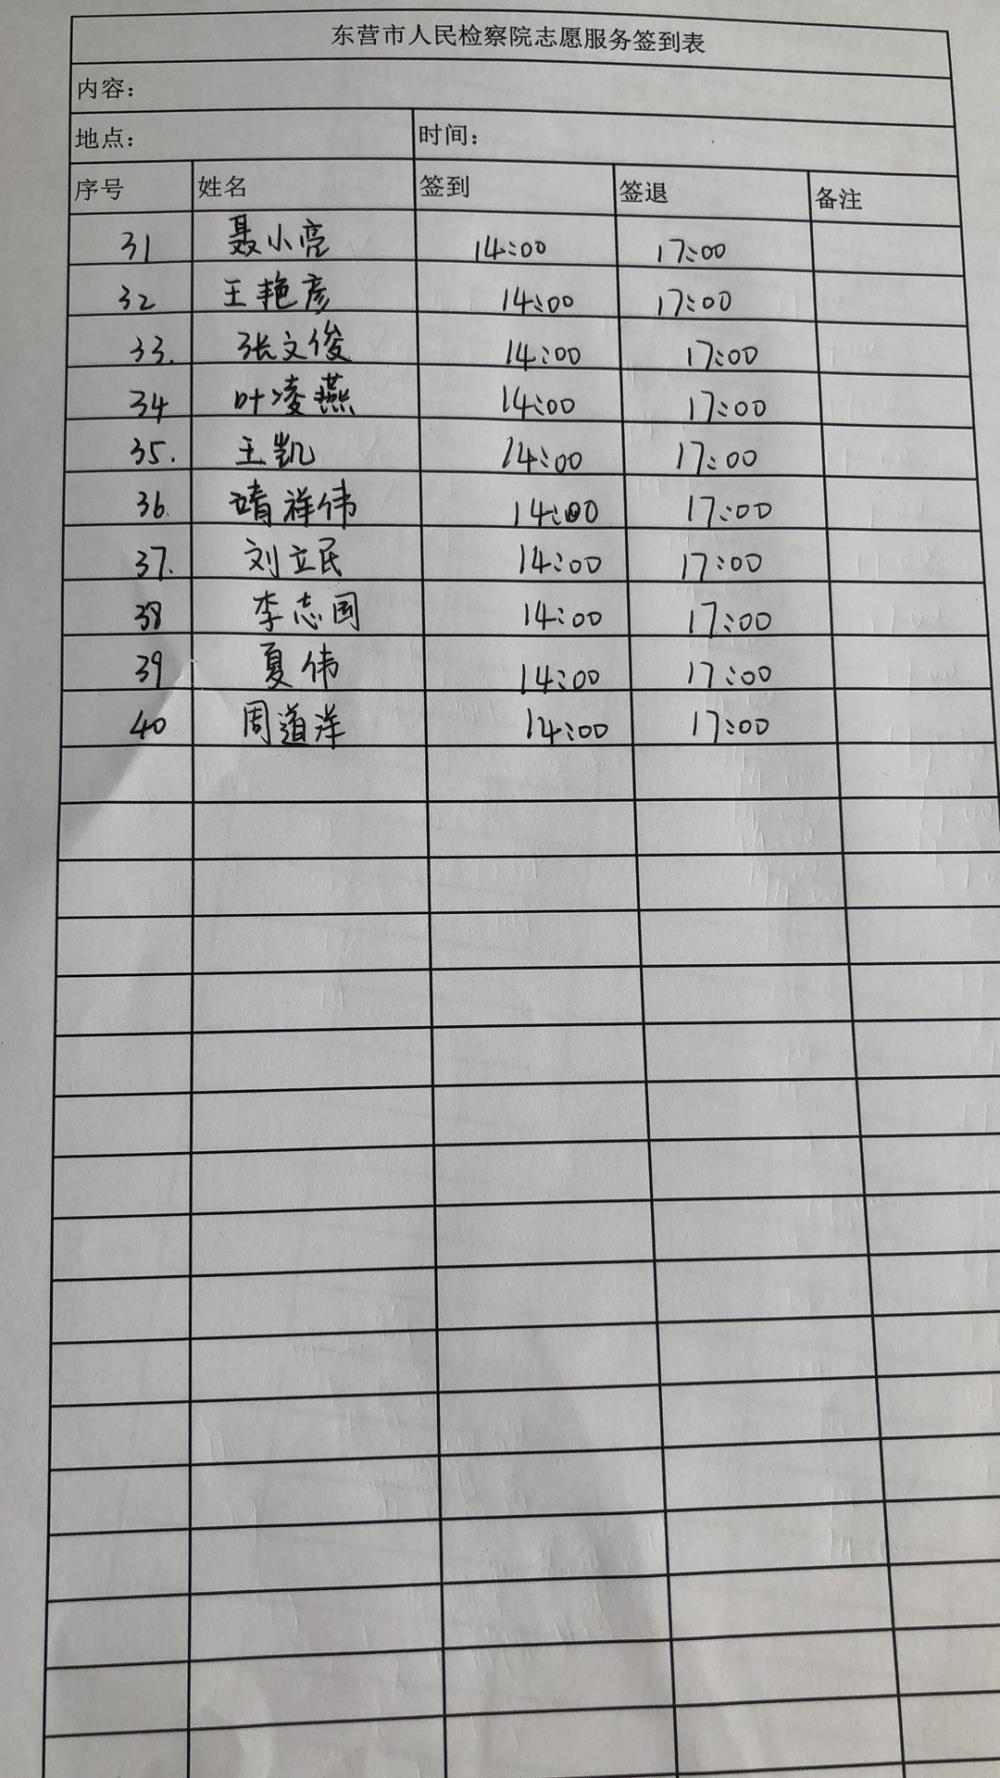 东营市人民检察院志愿服务签到表
内容：
地点： 时间：
序号 姓名 签到 签退 备注
31 聂小亮 14:00 17:00
32 王艳彦 14:00 17:00
33. 张文俊 14:00 17:00
34 叶凌燕 14:00 17:00
35. 王凯 14:00 17:00
36. 靖祥伟 14:00 17:00
37. 刘立民 14:00 17:00
38 李志国 14:00 17:00
39 夏伟 14:00 17:00
40 周道洋 14:00 17:00